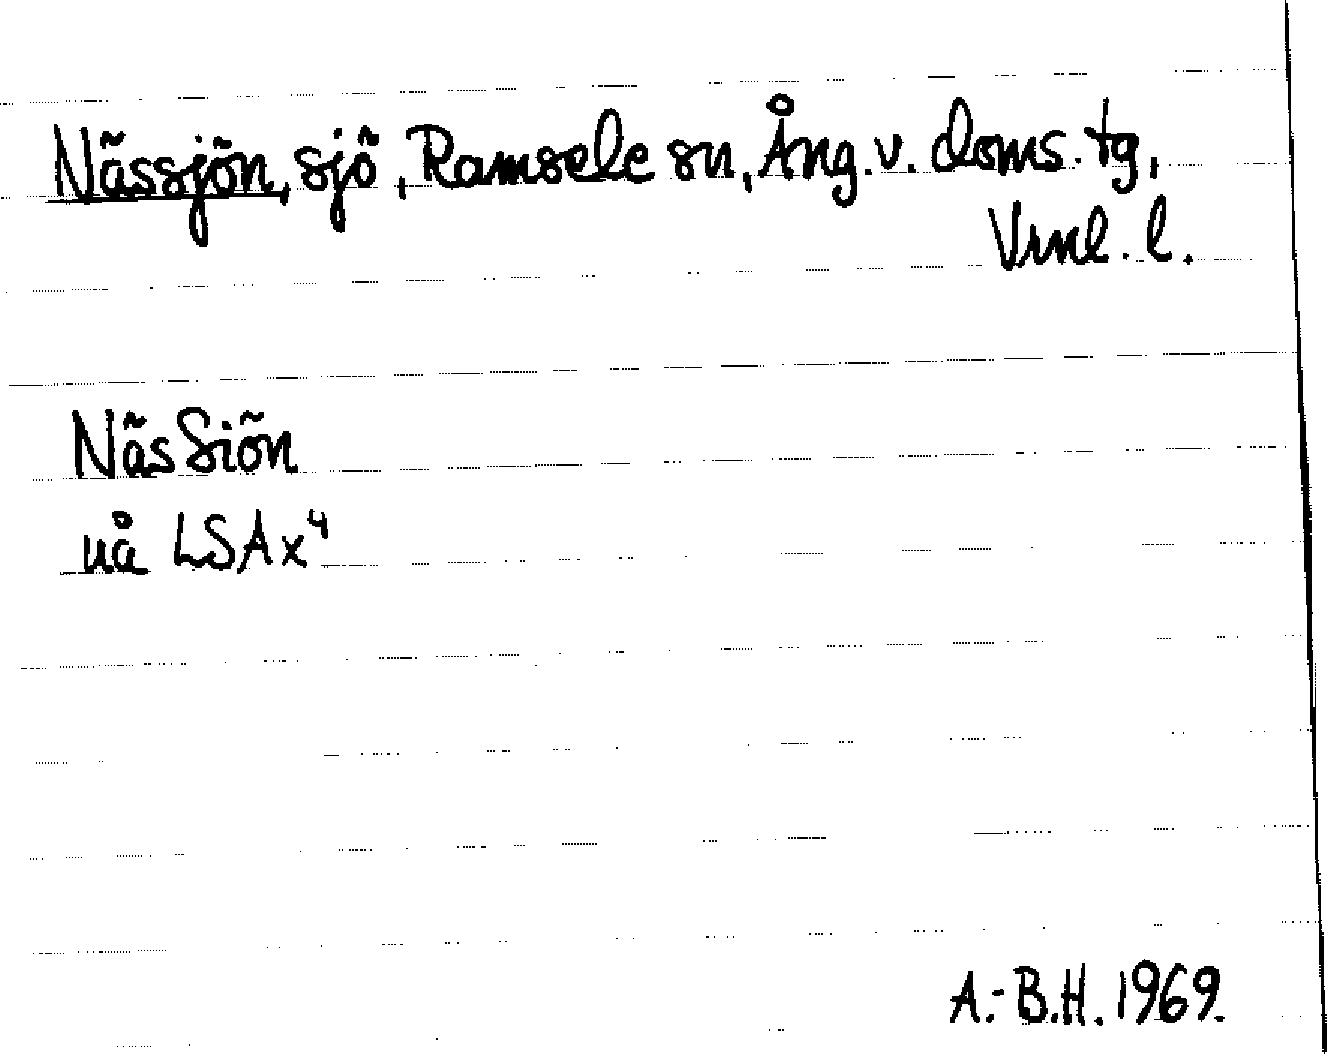 Nässjön, sjö, Ramsele sn, Ång. v. doms. tg,
Vrnl. l.
NäsSiön
uå LSA x⁴
A.-B.H. 1969.